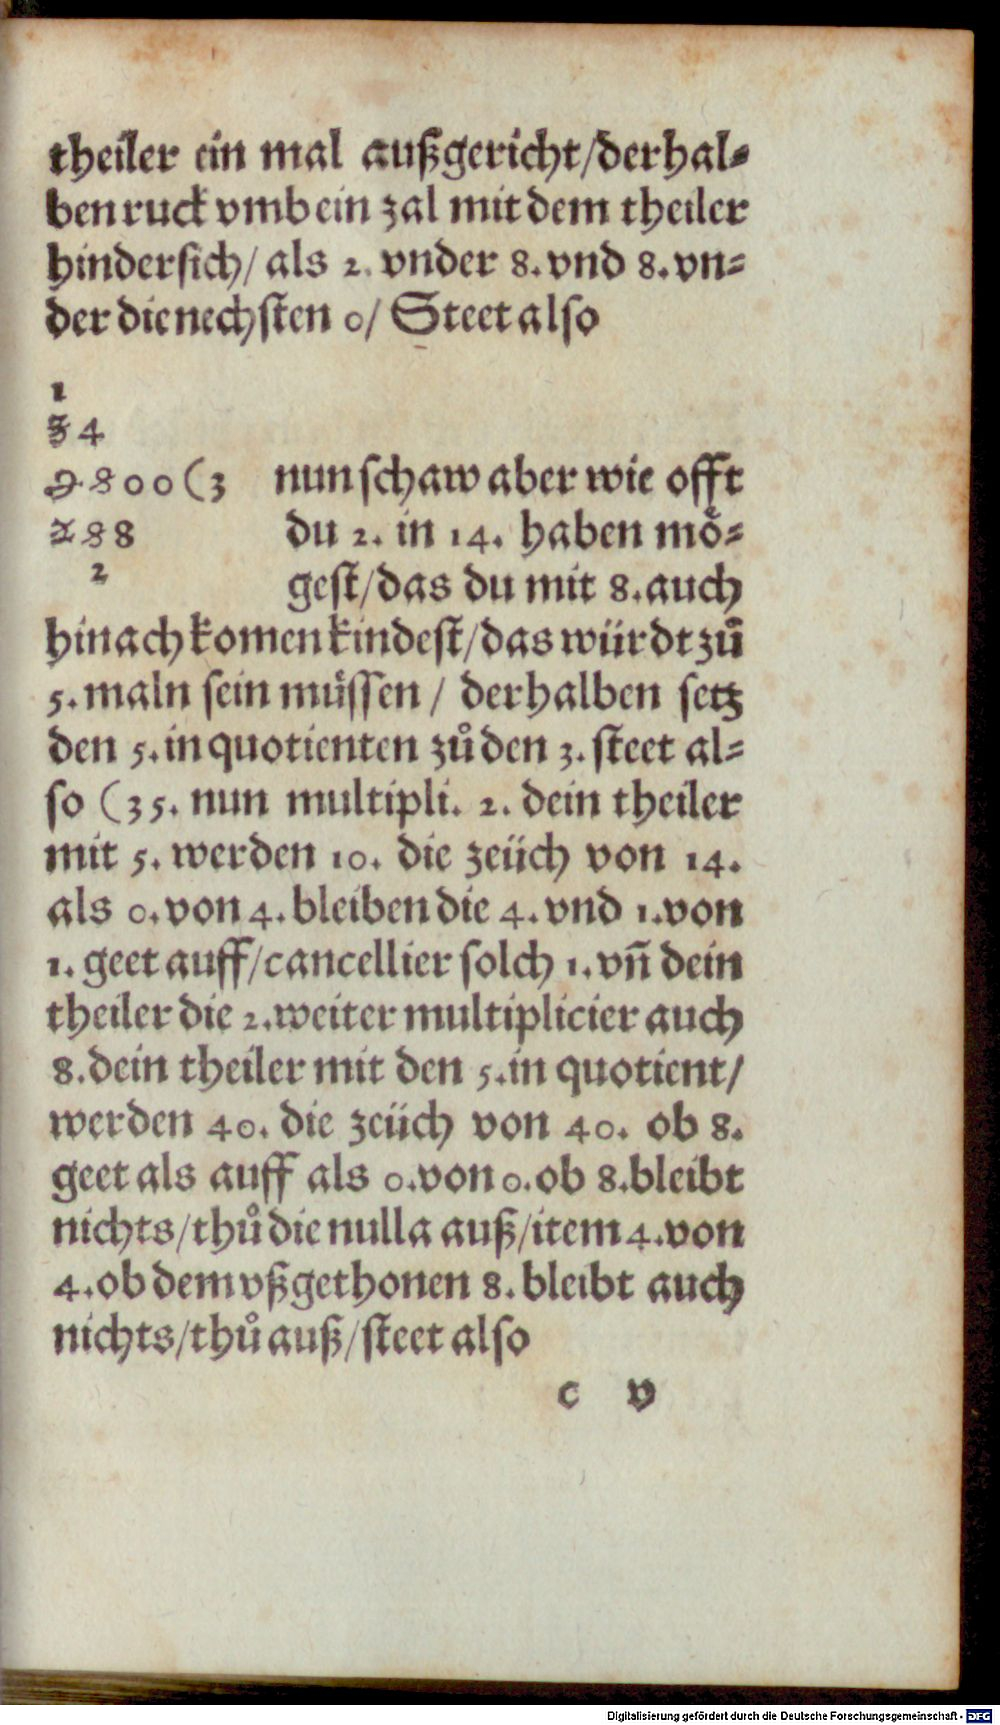 theiler ein mal außgericht/derhal-
ben ruck vmb ein zal mit dem theiler
hindersich/ als 2. vnder 8. vnd 8. vn-
der die nechsten 0/ Steet also
1
3 4
9 8 0 0 (3 nun schaw aber wie offt
2 8 8 du 2. in 14. haben mö-
2 gest/das du mit 8. auch
hinach komen kindest/das würdt zů
5. maln sein müssen / derhalben setz
den 5. in quotienten zů den 3. steet al-
so (35. nun multipli. 2. dein theiler
mit 5. werden 10. die zeüch von 14.
als 0. von 4. bleiben die 4. vnd 1. von
1. geet auff/cancellier solch 1. vñ dein
theiler die 2. weiter multiplicier auch
8. dein theiler mit den 5. in quotient/
werden 40. die zeüch von 40. ob 8.
geet als auff als 0. von 0. ob 8. bleibt
nichts/thů die nulla auß/item 4. von
4. ob dem vßgethonen 8. bleibt auch
nichts/thů auß/steet also
c v
Digitalisierung gefördert durch die Deutsche Forschungsgemeinschaft - DFG